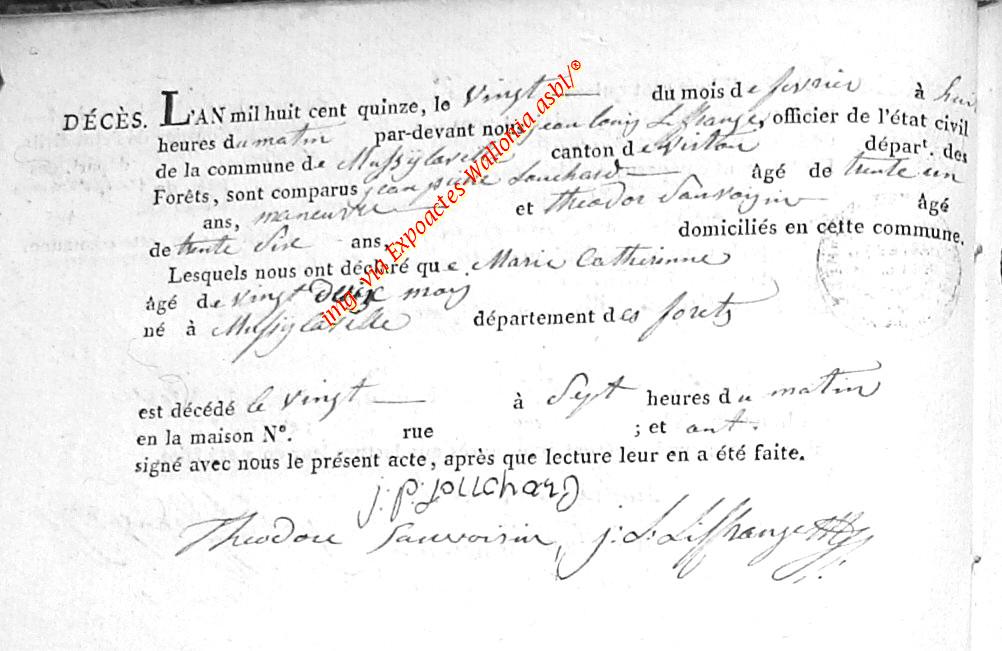 DÉCÈS. L'AN mil huit cent quinze, le vingt du mois de fevrier à huit
heures du matin par-devant nous jean louis Lefrange, officier de l'état civil
de la commune de Mussylaville canton de virton départ. des
Forêts, sont comparus jean piere Louchard âgé de trente un
ans, maneuvre et Theodor Sauvoisin âgé
de trente Six ans, domiciliés en cette commune.
Lesquels nous ont déclaré que Marie Catherinne
âgé de vingt moy
né à Mussylaville département des forets
est décédé le vingt à Sept heures du matin
en la maison N°. rue ; et ont
signé avec nous le présent acte, après que lecture leur en a été faite.
j: p: Louchard
Theodore Sauvoisin
img. via Expoactes Wallonia asbl/©